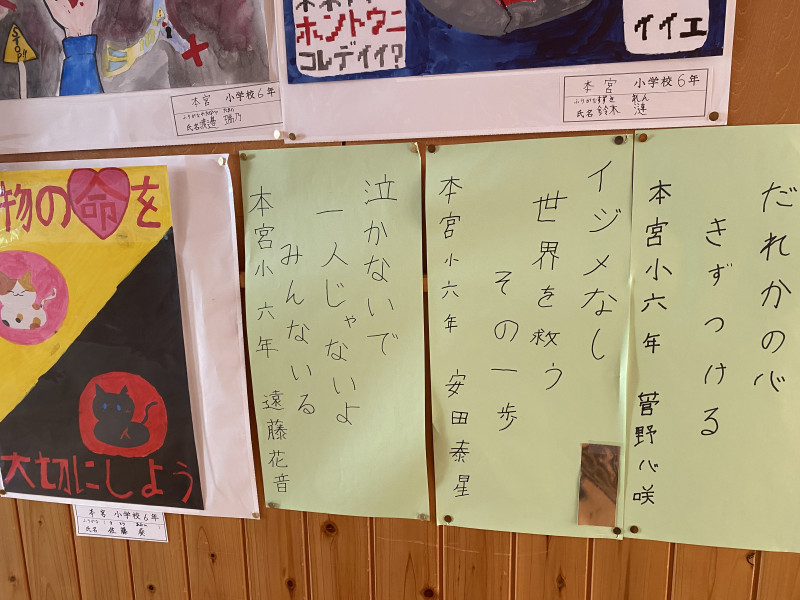 STOP
ホントウニ
コレデイイ?
イイエ
本宮 小学校6年
ふりがな
氏名 渡邉 瑞乃
本宮 小学校6年
ふりがな すずき れん
氏名 鈴木 漣
物の命を
大切にしよう
本宮 小学校6年
ふりがな
氏名 佐藤
泣かないで
一人じゃないよ
みんないる
本宮小 六年 遠藤花音
イジメなし
世界を救う
その一歩
本宮小 六年 安田泰星
だれかの心
きずつける
本宮小 六年 菅野心咲